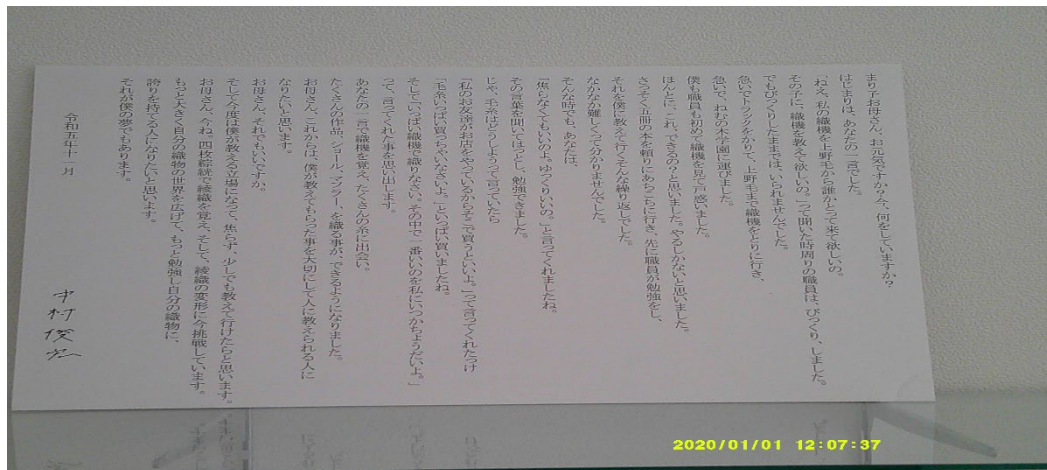 まり子お母さん、お元気ですか?今、何をしていますか?
はじまりは、あなたの一言でした。
「ねえ、私の織機を上野毛から誰かとって来て欲しいの。
その子に、織機を教えて欲しいの。」って聞いた時周りの職員は、びっくり、しました。
でもびっくりしたままでは、いられませんでした。
急いでトラックをかりて、上野毛まで織機をとりに行き、
急いで、ねむの木学園に運びました。
僕も職員も初めて織機を見て戸惑いました。
ほんとに、これ、できるの?と思いました。やるしかないと思いました。
さっそく五冊の本を頼りにあちこちに行き、先に職員が勉強をし、
それを僕に教えて行くそんな繰り返しでした。
なかなか難しくって分かりませんでした。
そんな時でも、あなたは、
「焦らなくてもいいのよ。ゆっくりいいの。」と言ってくれましたね。
その言葉を聞いてほっとし、勉強できました。
じゃ、毛糸はどうしようって言っていたら
「私のお友達がお店をやっているからそこで買うといいよ。」って言ってくれたっけ
「毛糸いっぱい買っちゃいなさいよ。」といっぱい買いましたね。
そして「いっぱい織機で織りなさい。その中で一番いいのを私にいつかちょうだいよ。」
って、言ってくれた事を思い出します。
あなたの一言で織機を覚え、たくさんの糸に出会い。
たくさんの作品、ショール、マフラー、を織る事が、できるようになりました。
お母さん、これからは、僕が教えてもらった事を大切にして人に教えられる人に
なりたいと思います。
お母さん、それでもいいですか、
そして今度は僕が教える立場になって、焦らず、少しでも教えて行けたらと思います。
お母さん、今ね。四枚綜絖で綾織を覚え、そして、綾織の変形に今挑戦しています。
もっと大きく自分の織物の世界を広げて、もっと勉強し自分の織物に、
誇りを持てる人になりたいと思います。
それが僕の夢でもあります。
令和五年十一月
中村俊宏
2020/01/01 12:07:37